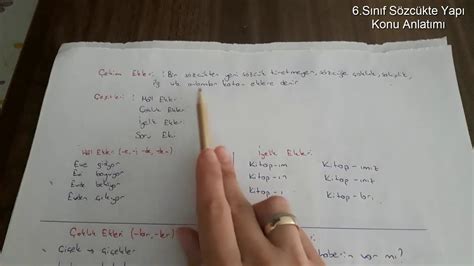 6.Sınıf Sözcükte Yapı
Konu Anlatımı
Çekim Ekleri : Bir sözcükten yeni sözcük türetmeyen, sözcüğe çokluk, sahiplik,
vb. anlamlar katan eklere denir.
Çeşitleri : Hâl Ekleri
Çokluk Ekleri
İyelik Ekleri
Soru Eki
Hâl Ekleri (-e, -i, -de, -den)
Eve gidiyor
Evi boyuyor
Evde bekliyor
Evden çıkıyor
İyelik Ekleri
Kitap-ım
Kitap-ın
Kitap-ı
Kitap-ımız
Kitap-ınız
Kitap-ları
Çokluk Ekleri (-lar, -ler)
Çiçek → çiçekler
haberin var mı?